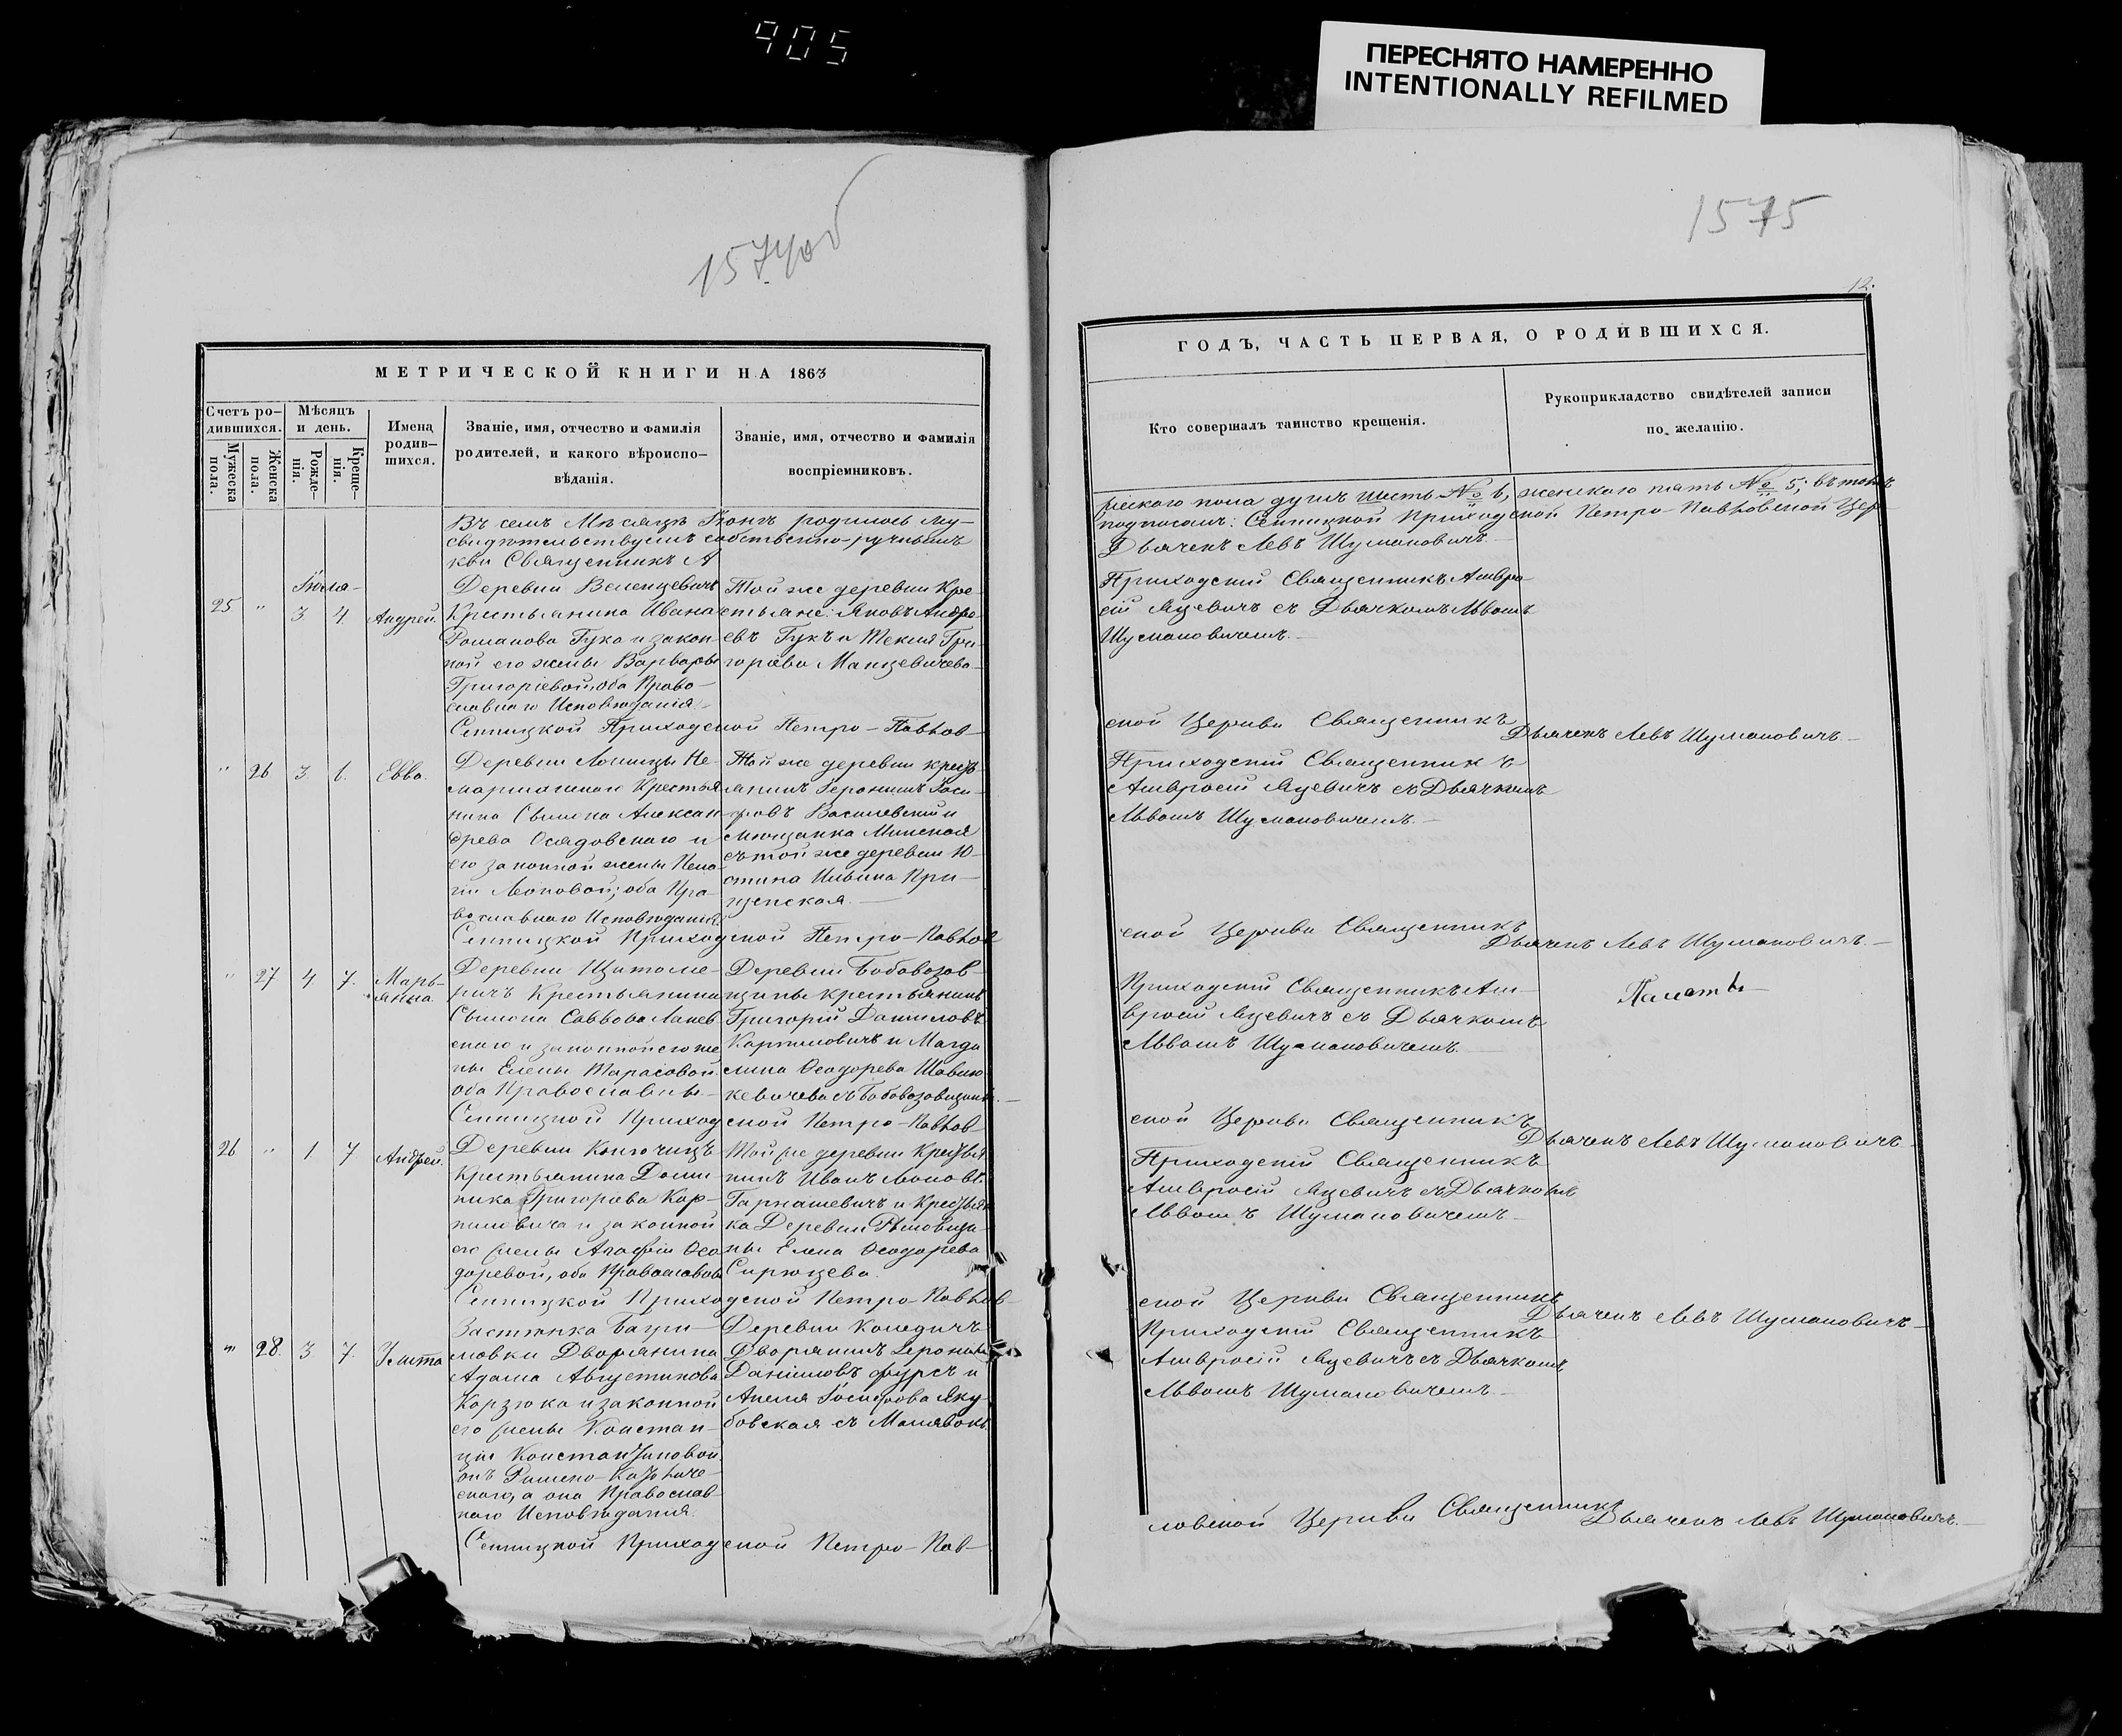 905
ПЕРЕСНЯТО НАМЕРЕННО
INTENTIONALLY REFILMED
1574об
1575
12.
МЕТРИЧЕСКОЙ КНИГИ НА 1863
Счетъ ро-
дившихся.
Мужеска
пола.
Женска
пола.
Мѣсяцъ
и день.
Рожде-
нія.
Креще-
нія.
Имена
родив-
шихся.
Званіе, имя, отчество и фамилія
родителей, и какого вѣроиспо-
вѣданія.
Званіе, имя, отчество и фамилія
воспріемниковъ.
Въ семъ Мѣсяцѣ Іюнѣ родилось му-
свидѣтельствуемъ собственно-ручнымъ
кви Священникъ А
Іюля-
25 " 3 4 Андрей.
Деревни Веленцевичъ
Крестьянина Ивана
Романова Гука и закон-
ной его жены Варвары
Григоріевой, оба Право-
славнаго Исповѣданія.
Той же деревни Кре-
стьяне: Яковъ Андре-
евъ Гукъ и Текля Гри-
горіева Манцевичева
Сенницкой Приходской Петро-Павлов-
" 26 3. 6. Евва.
Деревни Лошицы Не-
крестья
нина Сѵмеона Алексан-
древа Осядовскаго и
его законной жены Пела-
гіи Леоновой; оба Пра-
вославнаго Исповѣданія.
Той же деревни кресть-
янинъ Іеронимъ Іоси-
фовъ Василевскій и
мѣщанка Минская
съ той же деревни Ю-
стина Ильина Кри-
Сенницкой Приходской Петро-Павлов
" 27 4 7. Марь-
янна.
Деревни Щитоме-
ричъ Крестьянина
Сѵмеона Саввова Лапев-
скаго и законной его же
ны Елены Тарасовой
оба Православны.
Деревни Бабовозов-
щины крестьянинъ
Григорій Даниловъ
Карпиловичъ и Магда
лина Ѳеодорева
Сенницкой Приходской Петро-Павлов
26 " 1 7 Андрей.
Деревни Конючицъ
Крестьянина Доми
ника Григорьева Кар-
пиловича и законной
его жены Агафіи Ѳео
доревой, оба Православны
Той же деревни Кресть
нинъ Иванъ Леоновъ
Гарнашевичъ и Крестьян
ка Деревни
ны Елена Ѳеодорева
Сирюцева.
Сенницкой Приходской Петро-Павлов-
" 28. 3 7. Улита
Застѣнка Бачи-
ловки Дворянина
Адама Августинова
Корзюка и законной
его жены Констан-
ціи Константиновой
онъ Римско-Католиче-
скаго, а она Православ
наго Исповѣданія.
Деревни Колядичъ
Дворянинъ Іеронимъ
Даніиловъ Фурсъ и
Анеля Іосифова Яку-
бовская съ Малявокъ.
Сенницкой Приходской Петро-Пав-
ГОДЪ, ЧАСТЬ ПЕРВАЯ, О РОДИВШИХСЯ.
Кто совершалъ таинство крещенія.
Рукоприкладство свидѣтелей записи
по желанію.
жескаго пола душъ шесть № 6, женскаго пять № 5; въ томъ
подписомъ: Сенницкой Приходской Петро-Павловской Цер-
Дьячекъ Левъ Шумановичъ.
Приходскій Священникъ Амвро-
сій Яцевичъ съ Дьячкомъ Львомъ
Шумановичемъ.
ской Церкви Священникъ
Дьячекъ Левъ Шумановичъ.
Приходскій Священникъ
Амвросій Яцевичъ съ Дьячкомъ
Львомъ Шумановичемъ.
ской Церкви Священникъ
Дьячекъ Левъ Шумановичъ.
Приходскій Священникъ Ам-
вросій Яцевичъ съ Дьячкомъ
Львомъ Шумановичемъ.
ской Церкви Священникъ
Дьячекъ Левъ Шумановичъ
Приходскій Священникъ
Амвросій Яцевичъ съ Дьячкомъ
Львомъ Шумановичемъ
ской Церкви Священникъ
Дьячекъ Левъ Шумановичъ
Приходскій Священникъ
Амвросій Яцевичъ съ Дьячкомъ
Львомъ Шумановичемъ.
ловской Церкви Священникъ
Дьячекъ Левъ Шумановичъ.